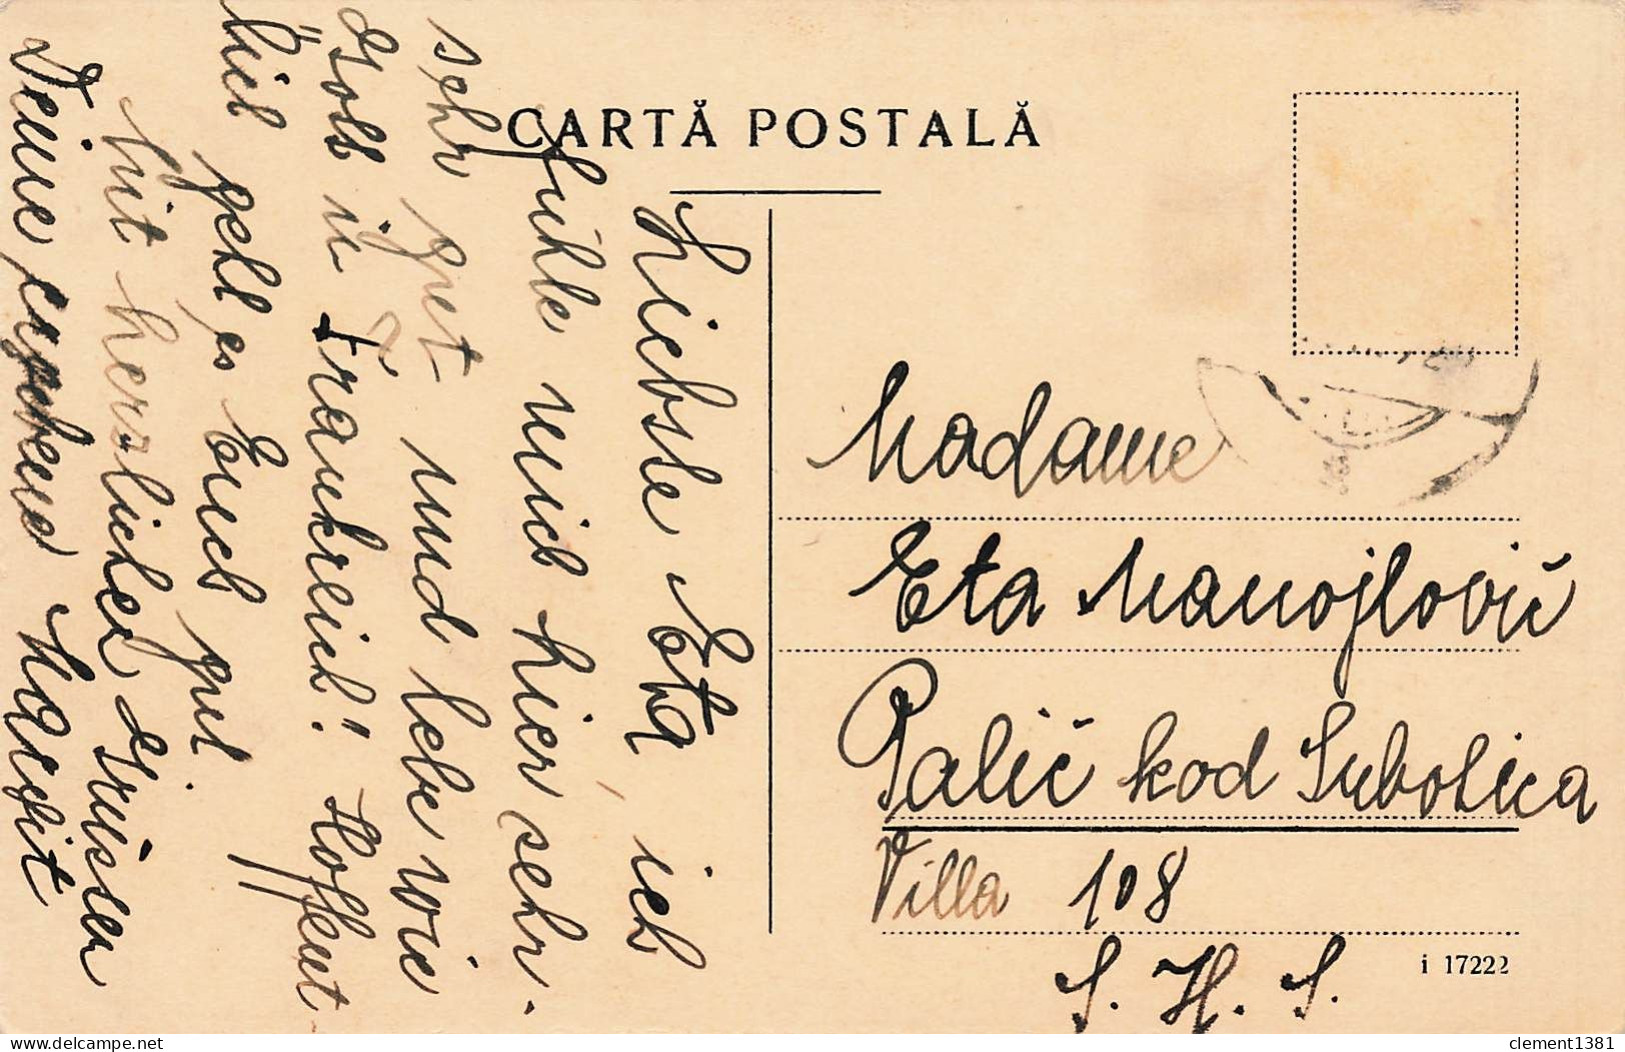 CARTĂ POSTALĂ
Liebste Eta, ich
fühle mich hier sehr-
sehr gut und lebe wie
"Gott in Frankreich!" Hoffent-
lich geht es Euch gut.
Mit herzlichen Grüssen
Deine ergebene
Madame
Eta Manojlović
Palić kod Subotica
Villa 108
S. H. S.
i 17222
clement1381